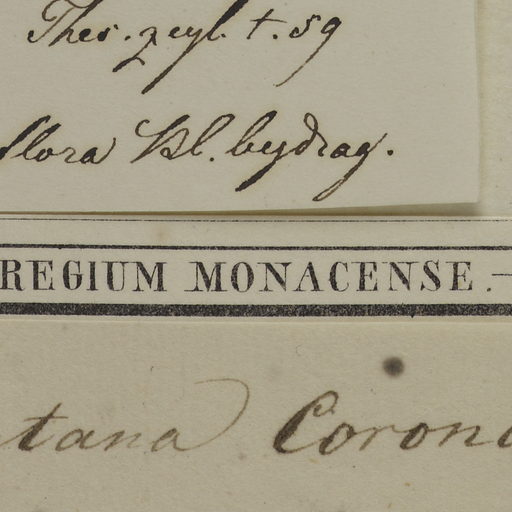 Thes. zeyl. t. 59
flora Bl. bydrag.
REGIUM MONACENSE.
tana Corona